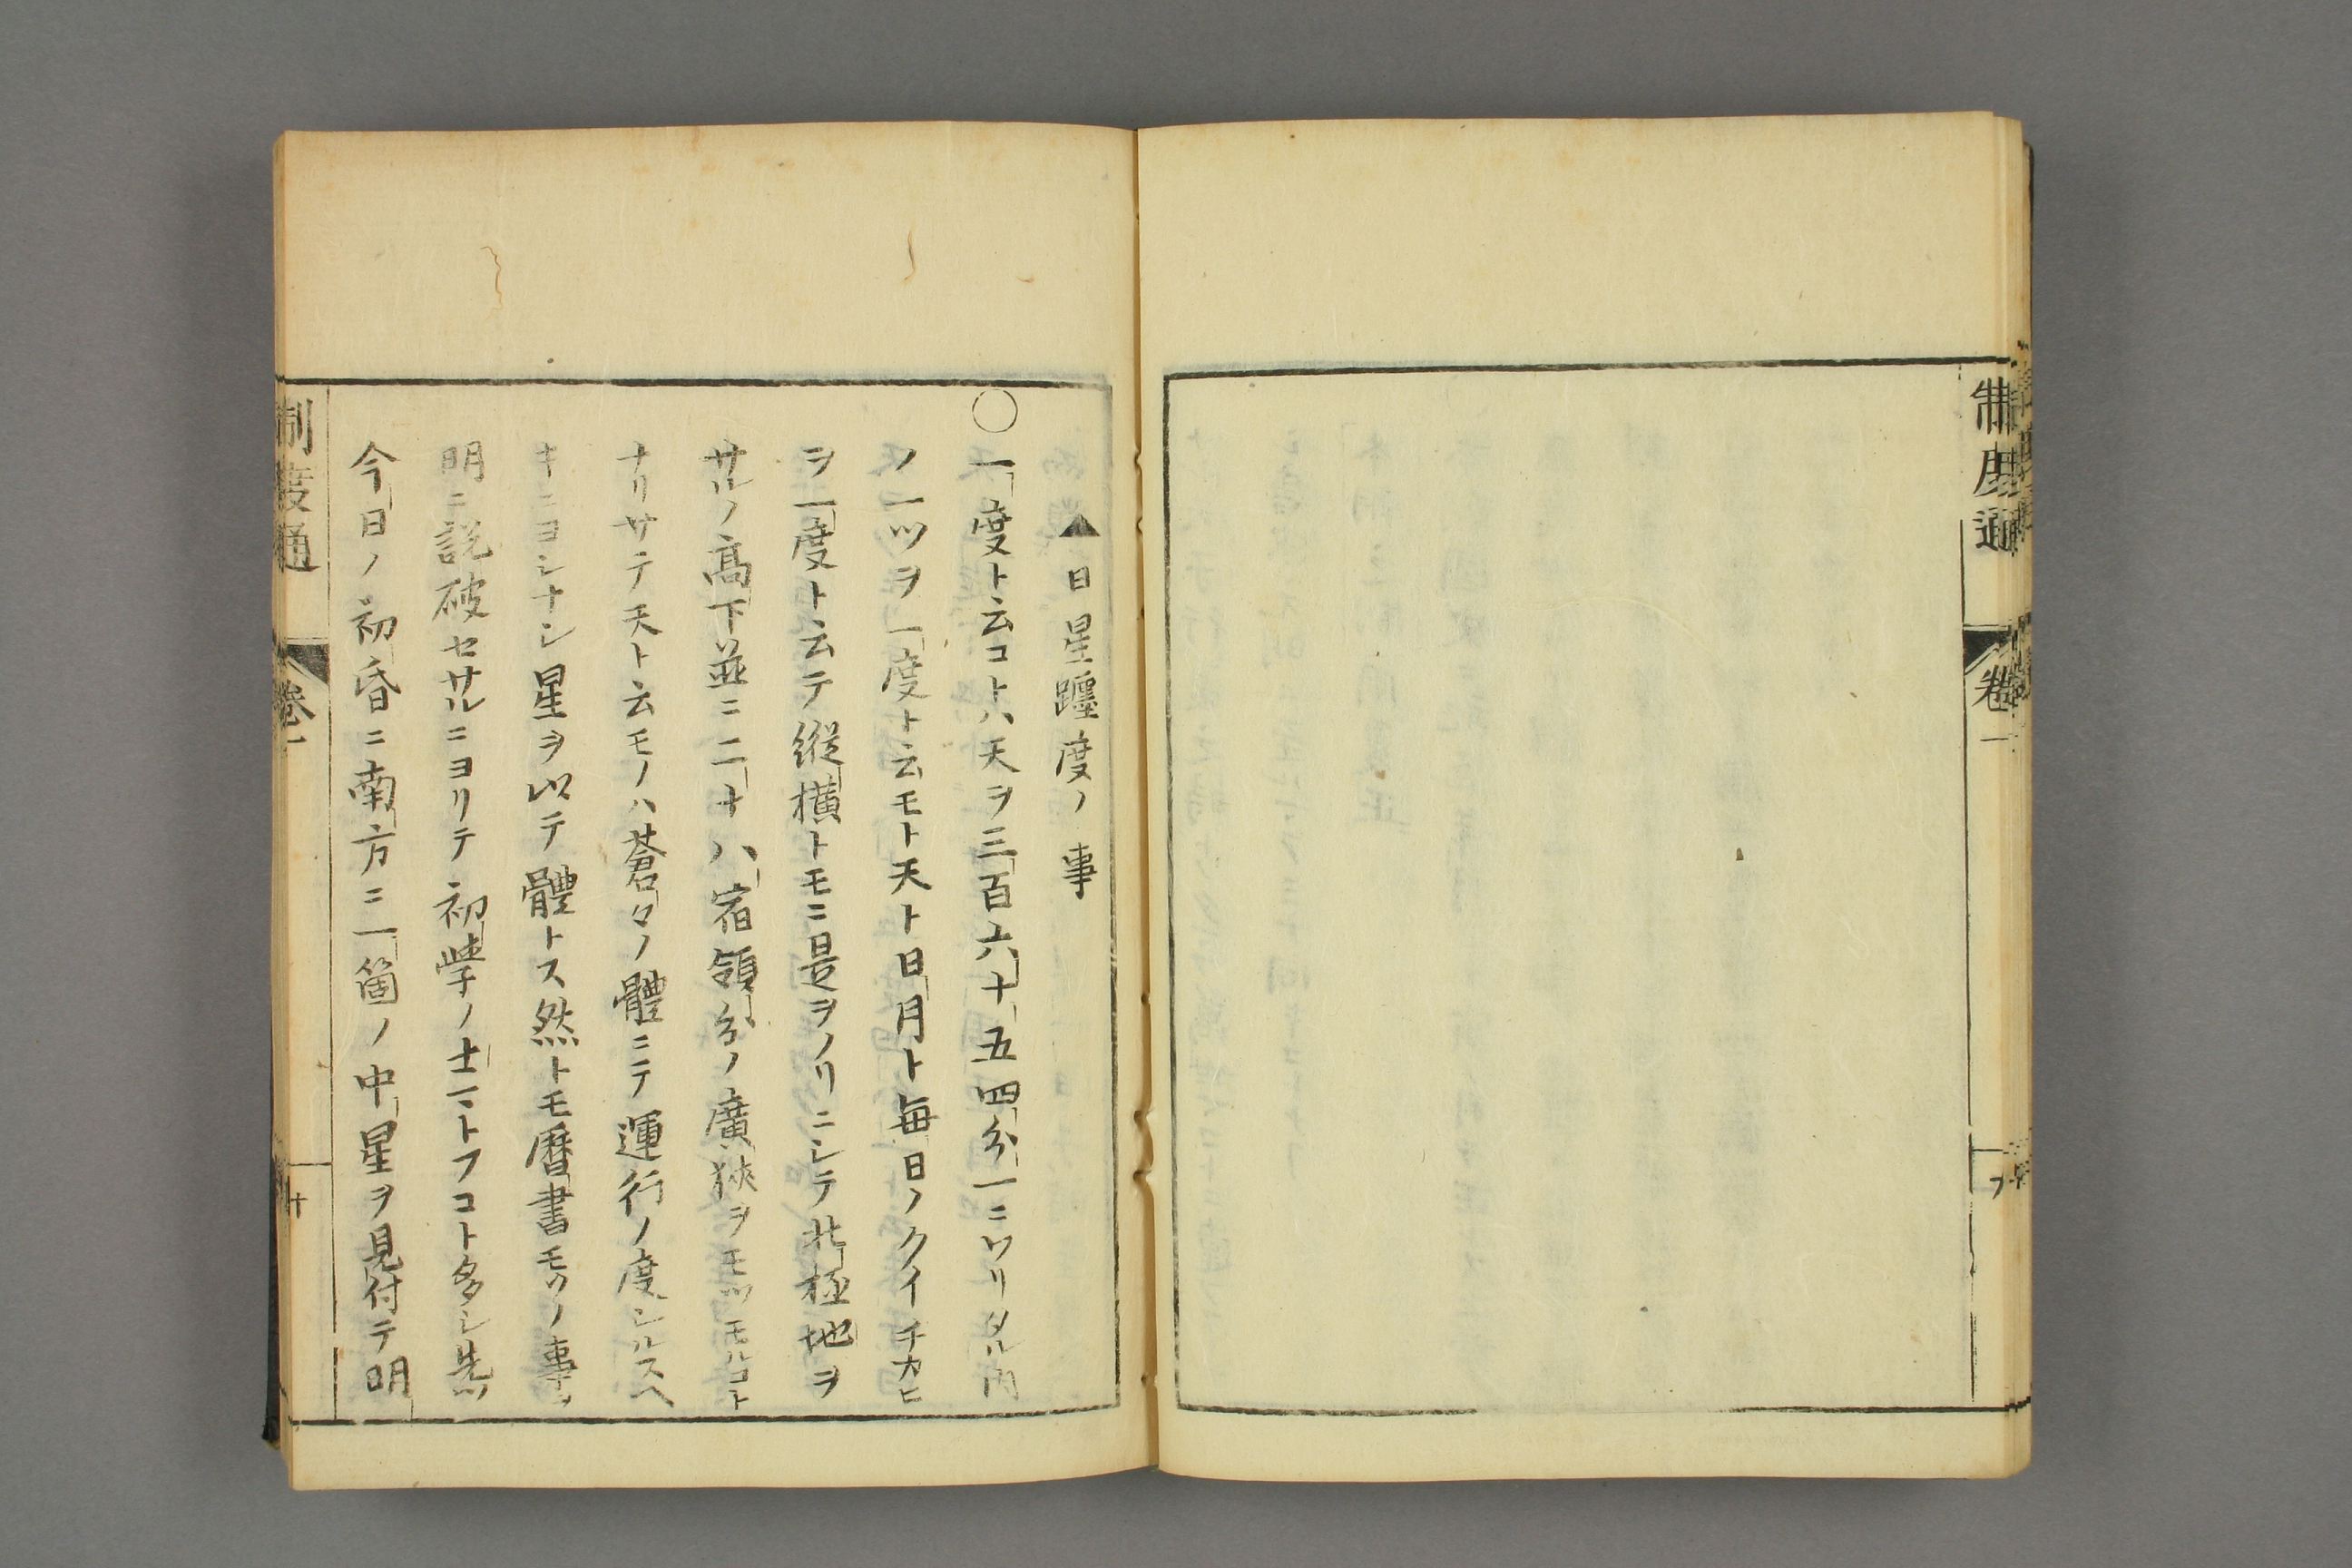 制度通
卷一
▲日星躔度ノ事
○一度ト云コトハ天ヲ三百六十五四分一ニワリタル内
ノ一ツヲ一度ト云モト天ト日月ト毎日ノクイチカヒ
ヲ一度ト云テ縱橫トモニ是ヲノリニシテ北極地ヲ
サルノ高下並ニ二十八宿領分ノ廣狹ヲモツモルコト
ナリサテ天ト云モノハ蒼々ノ體ニテ運行ノ度シルスヘ
キニヨシナシ星ヲ以テ體トス然トモ曆書モツノ事ヲ
明ニ説破セサルニヨリテ初學ノ士マトフコト多シ先ツ
今日ノ初昏ニ南方ニ一箇ノ中星ヲ見付テ明
制度通
卷一
十